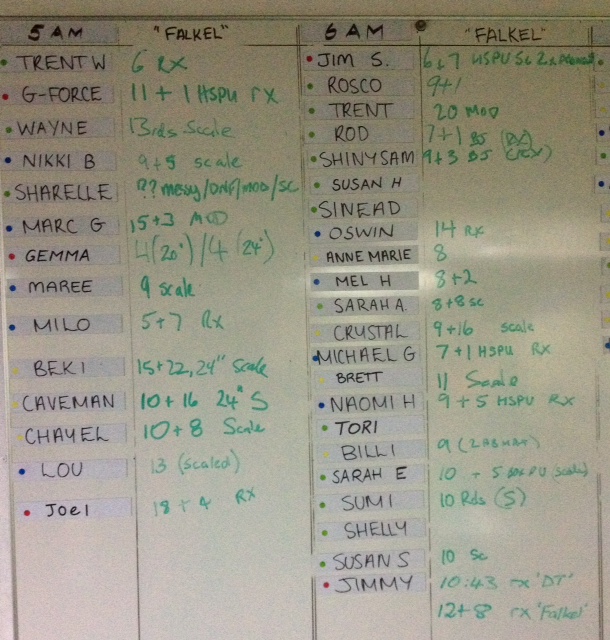 5 AM "FALKEL"
TRENT W 6 RX
G-FORCE 11 + 1 HSPU rx
WAYNE 13rds Scale
NIKKI B 9+5 scale
SHARELLE ?? messy/DNF/MOD/SC
MARC G 15+3 MOD
GEMMA 4(20")/4 (24")
MAREE 9 scale
MILO 5+7 Rx
BEKI 15+22, 24" Scale
CAVEMAN 10+16 24" S
CHAYEL 10+8 Scale
LOU 13 (scaled)
Joel 18 + 4 RX
6 AM "FALKEL"
JIM S. 6+7 HSPU Sc
ROSCO 9+1
TRENT 20 MOD
ROD 7+1 BS (RX)
SHINYSAM 9+3 BS
SUSAN H
SINEAD
OSWIN 14 RX
ANNE MARIE 8
MEL H 8+2
SARAH A. 8+8 sc
CRYSTAL 9+16 scale
MICHAEL G 7+1 HSPU RX
BRETT 11 Scale
NAOMI H 9+5 HSPU RX
TORI
BILLI 9 (2 ABMAT)
SARAH E 10 + 5 (scale)
SUMI 10 Rds (S)
SHELLY
SUSAN S 10 Sc
JIMMY 10:43 rx "DT"
12+8 rx "Falkel"